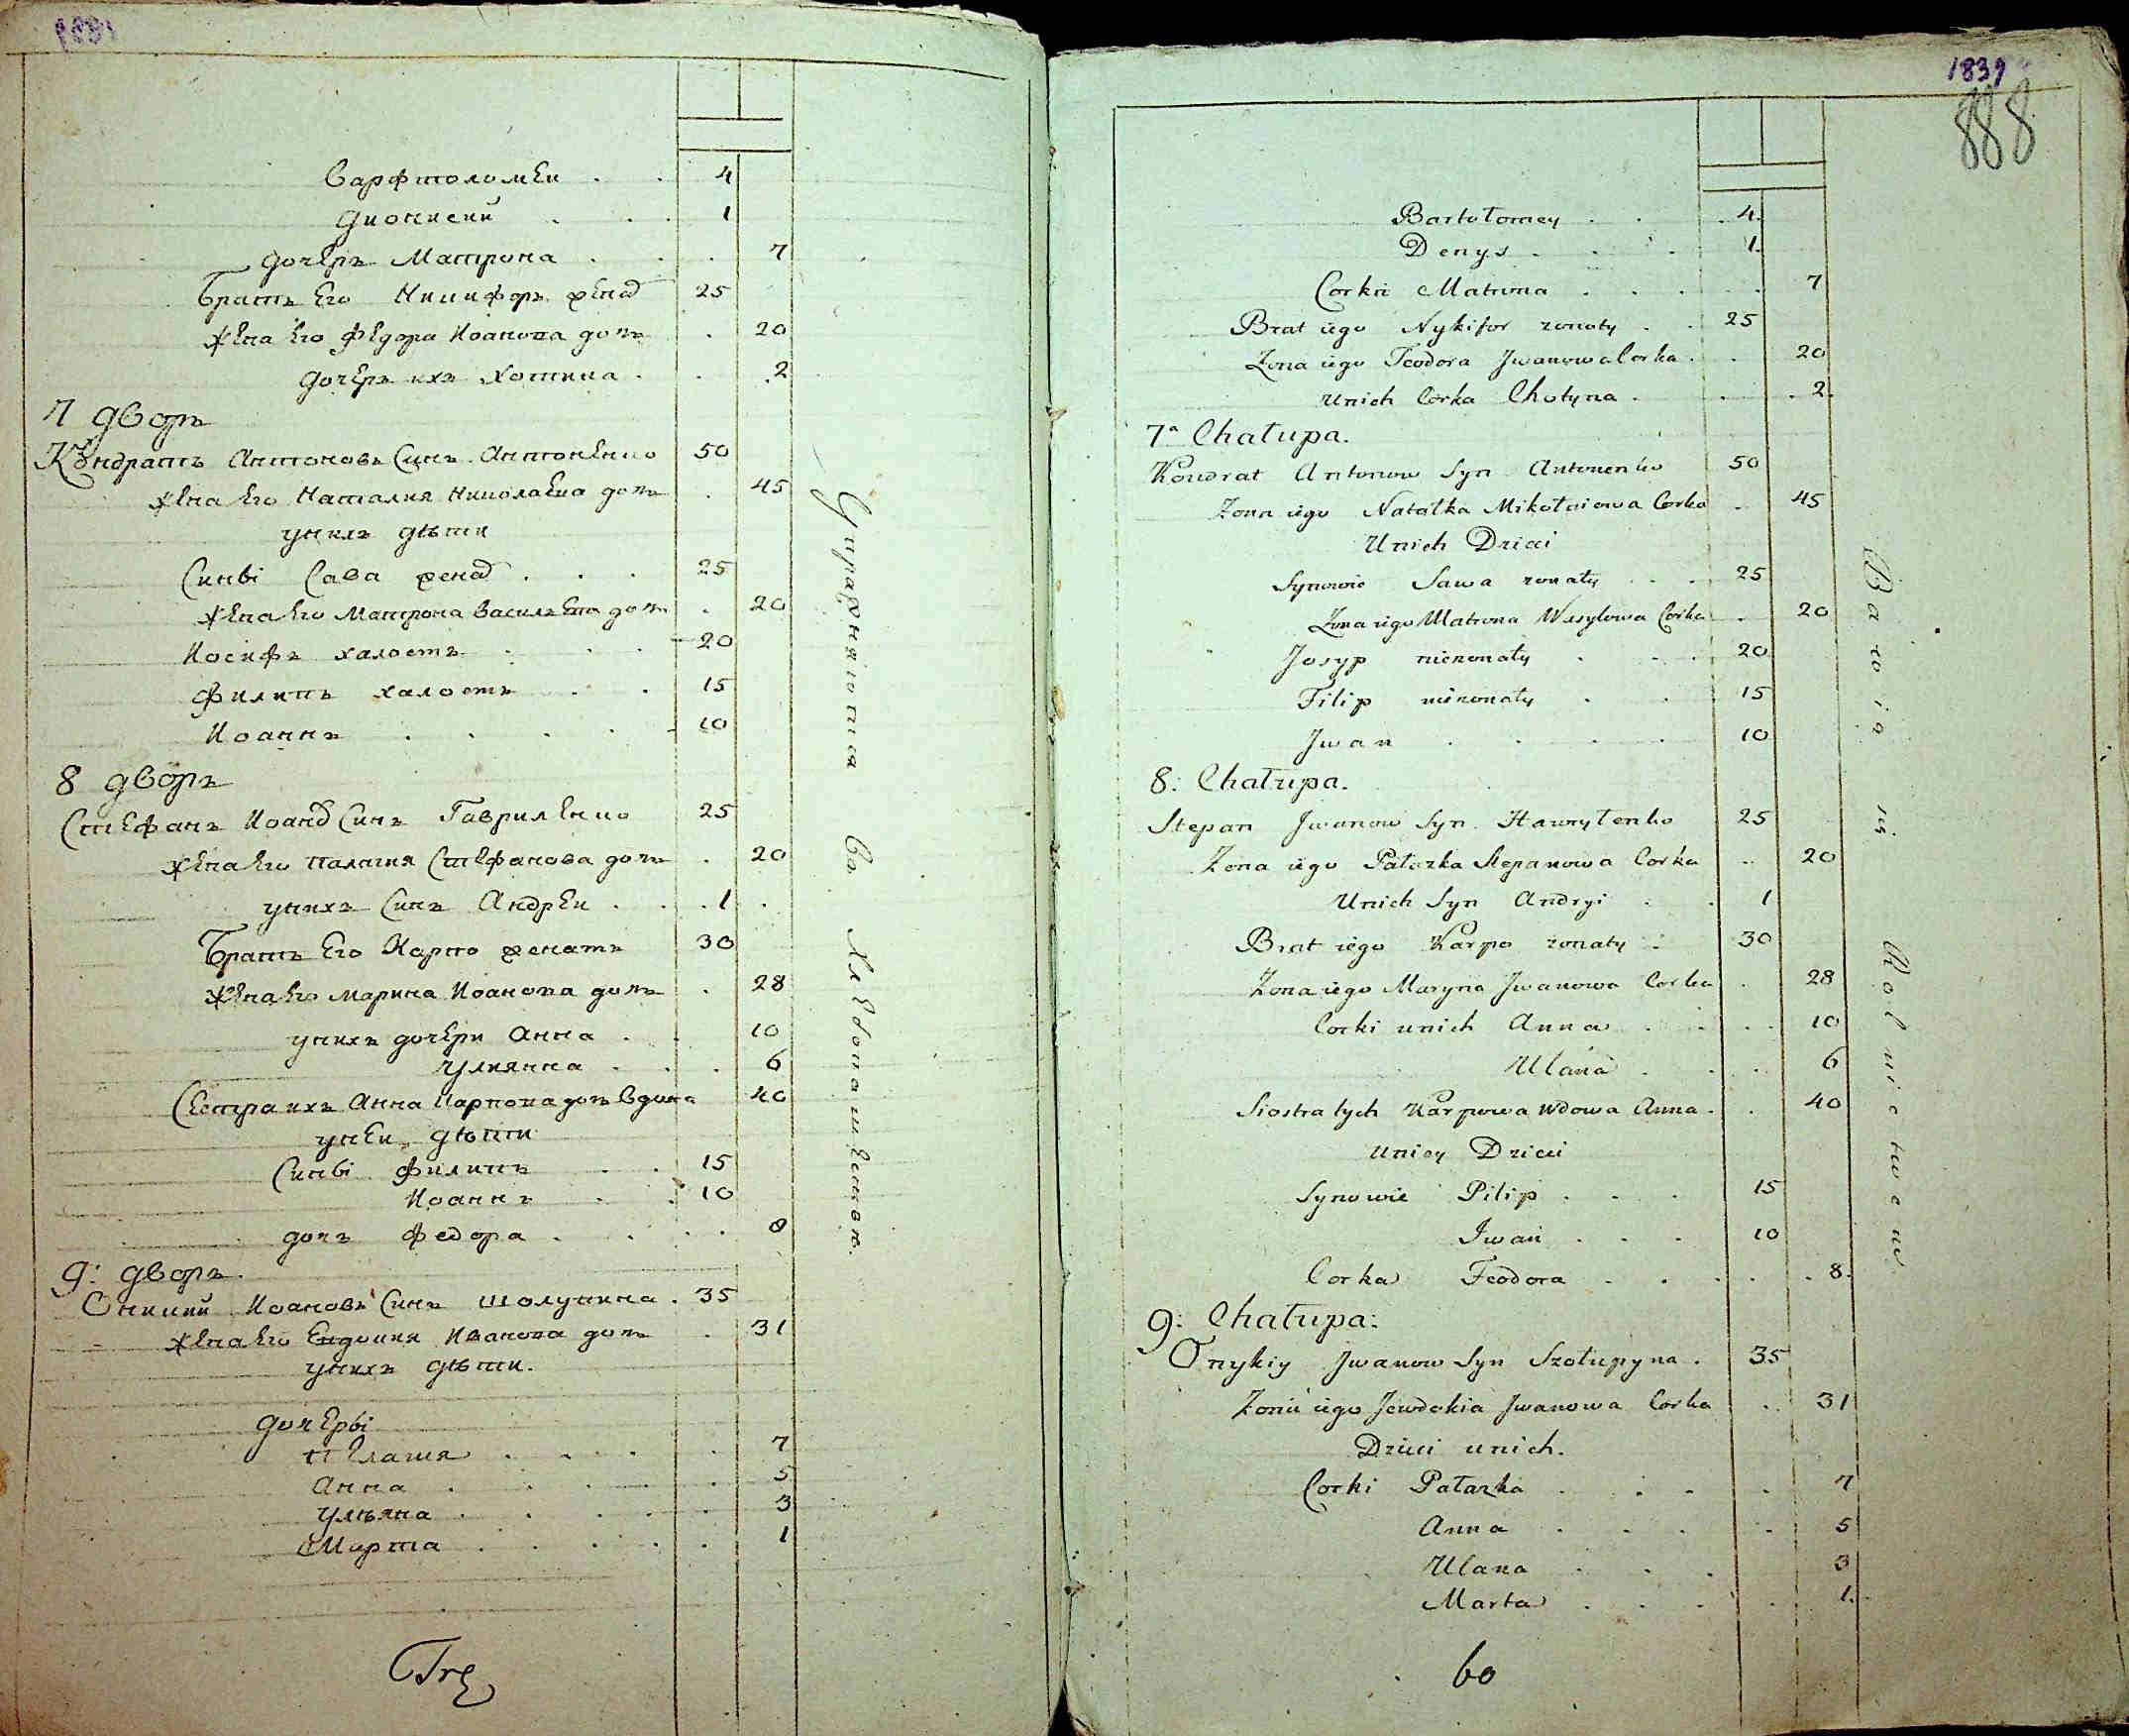 Варфтоломеи . . 4
Дионисий . . . 1
дочеръ Матрона . . . 7
Братъ Его Никифоръ женад 25
жена Его Федора Иоанова дочъ . 20
дочеръ ихъ Хотина . . 2
7 дворъ
Кондратъ Антоновъ Синъ Антоненко 50
жена Его Наталия Николаева дочъ . 45
унихъ дѣти
Синві Сава женад . . . 25
жена Его Матрона Василѣва дочъ . 20
Иосифъ халостъ . . . 20
Филипъ халостъ . . 15
Иоаннъ . . . . . 10
8 дворъ
Стефанъ Иоанов Синъ Гавриленко 25
жена Его Палагия Стефанова дочъ . 20
унихъ Синъ Андреи . . . 1 .
Братъ Его Карпо женатъ 30
жена Его Марина Иоанова дочъ . 28
унихъ дочери Анна . . 10
Улиянна . . . 6
Сестра ихъ Анна Карпова дочъ вдова 40
унеи дѣти
Синві Филипъ . . 15
Иоаннъ . . 10
дочъ Федора . . . . 8
9: дворъ.
Оникий Иоановъ Синъ Шолупина . 35
жена Его Евдокия Иванова дочъ . 31
унихъ дѣти.
Дочерві
Пелагия . . . . . 7
Анна . . . . . 5
Улѣяна . . . . . 3
Марта . . . . . 1
Упражняются въ Хлебопашенствѣ.
Trę
1839
888
Bartołomey . . . 4.
Denys . . . . 1.
Corka Matrona . . . . . 7
Brat iego Nykifor zonaty . . 25
Zona iego Teodora Jwanowa Corka . . 20
Unich Corka Chotyna . . . 2.
7a Chałupa.
Kondrat Antonow Syn Antonenko 50
Zona iego Natałka Mikołaiowa Corka . 45
Unich Dzieci
Synowie Sawa zonaty . . . 25
Zona iego Matrona Wasylowa Corka . 20
Josyp niezonaty . . . 20
Filip niezonaty . . 15
Jwan . . . . 10
8: Chałupa.
Stepan Jwanow Syn Hawryłenko 25
Zona iego Pałazka Stepanowa Corka .. 20
Unich Syn Andryi . . 1
Brat iego Karpo zonaty . 30
Zona iego Maryna Jwanowa Corka . 28
Corki unich Anna . . . . 10
Ulana . . . 6
Siostra tych Karpowa Wdowa Anna . . 40
Uniey Dzieci
Synowie Pilip . . . 15
Iwan . . . 10
Corka Teodora . . . . . 8.
9: Chałupa:
Onykiy Jwanow Syn Szołupyna . 35
Zona iego Jewdokia Jwanowa Corka . . 31
Dzieci unich.
Corki Pałazka . . . . 7
Anna . . . . 5
Ulana . . . 3
Marta . . . . . 1.
Bawią się Rolnictwem
60